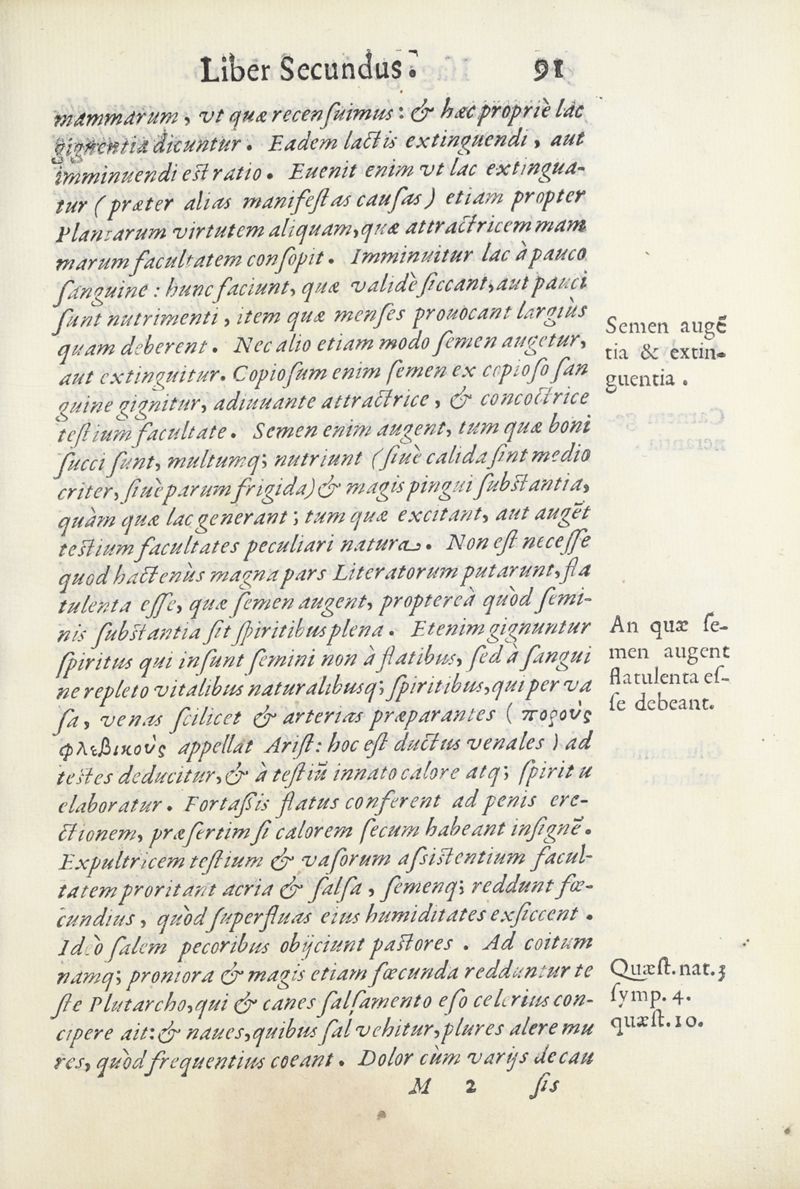 Liber Secundus. 91
mammarum, vt quæ recenſuimus: & hæc proprie lac
gignentia dicuntur. Eadem lactis extinguendi, aut
imminuendi eſt ratio. Euenit enim vt lac extingua-
tur (præter alias manifeſtas cauſas) etiam propter
Plantarum virtutem aliquam, quæ attractricem mam
marum facultatem conſopit. Imminuitur lac à pauco
ſanguine: hunc faciunt, quæ validè ſiccant, aut pauci
ſunt nutrimenti, item quæ menſes prouocant largiùs
quam deberent. Nec alio etiam modo ſemen augetur,
aut extinguitur. Copioſum enim ſemen ex copioſo ſan
guine gignitur, adiuuante attractrice, & concoctrice
teſtium facultate. Semen enim augent, tum quæ boni
ſucci ſunt, multumq; nutriunt (ſiue calida ſint medio
criter, ſiue parum frigida) & magis pingui ſubſtantia,
quàm quæ lac generant; tum quæ excitant, aut augēt
teſtium facultates peculiari natura. Non eſt neceſſe
quod hactenùs magna pars Literatorum putarunt, fla
tulenta eſſe, quæ ſemen augent, propterea quòd ſemi-
nis ſubſtantia ſit ſpiritibus plena. Etenim gignuntur
ſpiritus qui inſunt ſemini non à flatibus, ſed à ſangui
ne repleto vitalibus naturalibusq; ſpiritibus, qui per va
ſa, venas ſcilicet & arterias præparantes (πορούς
φλεβικούς appellat Ariſt: hoc eſt ductus venales) ad
teſtes deducitur, & à teſtiū innato calore atq; ſpiritu
elaboratur. Fortaſſis flatus conferent ad penis ere-
ctionem, præſertim ſi calorem ſecum habeant inſignē.
Expultricem teſtium & vaſorum aſsiſtentium facul-
tatem proritant acria & ſalſa, ſemenq; reddunt fœ-
cundius, quòd ſuperfluas eius humiditates exſiccent.
Ideo ſalem pecoribus obijciunt paſtores. Ad coitum
namq; proniora & magis etiam fœcunda redduntur te
ſte Plutarcho, qui & canes ſalſamento eſo celerius con-
cipere ait: & naues, quibus ſal vehitur, plures alere mu
res, quòd frequentius coeant. Dolor cùm varijs de cau
M 2 ſis
Semen augē
tia & extin-
guentia.
An quæ ſe-
men augent
flatulenta eſ-
ſe debeant.
Quæſt. nat. 3
ſymp. 4.
quæſt. 10.